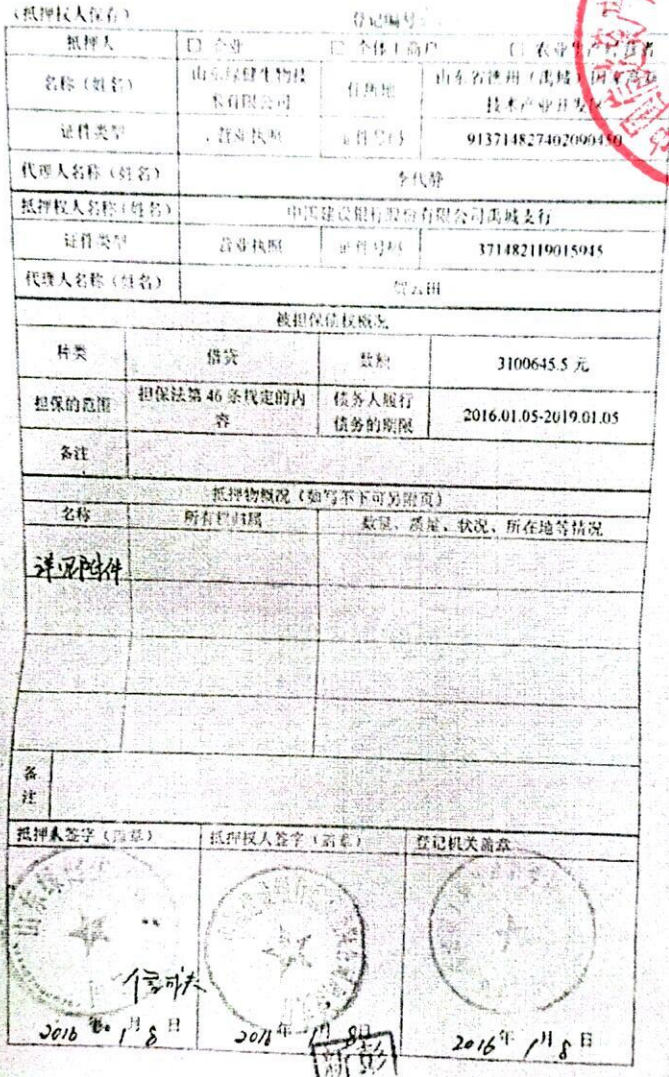 （抵押权人保存）
登记编号：
抵押人 □ 企业 □ 个体工商户 □ 农业生产经营者
名称（姓名） 山东绿健生物技术有限公司 住所地 山东省德州（禹城）国家高新技术产业开发区
证件类型 营业执照 证件号码 913714827402090450
代理人名称（姓名） 李代静
抵押权人名称（姓名） 中国建设银行股份有限公司禹城支行
证件类型 营业执照 证件号码 371482119015945
代理人名称（姓名） 贺云田
被担保债权概况
种类 借贷 数额 3100645.5 元
担保的范围 担保法第 46 条规定的内容 债务人履行债务的期限 2016.01.05-2019.01.05
备注
抵押物概况（如写不下可另附页）
名称 所有权归属 数量、质量、状况、所在地等情况
详见附件
备注
抵押人签字（盖章） 抵押权人签字（盖章） 登记机关盖章
山东绿
2016 年 1 月 8 日 2016 年 1 月 8 日 2016 年 1 月 8 日